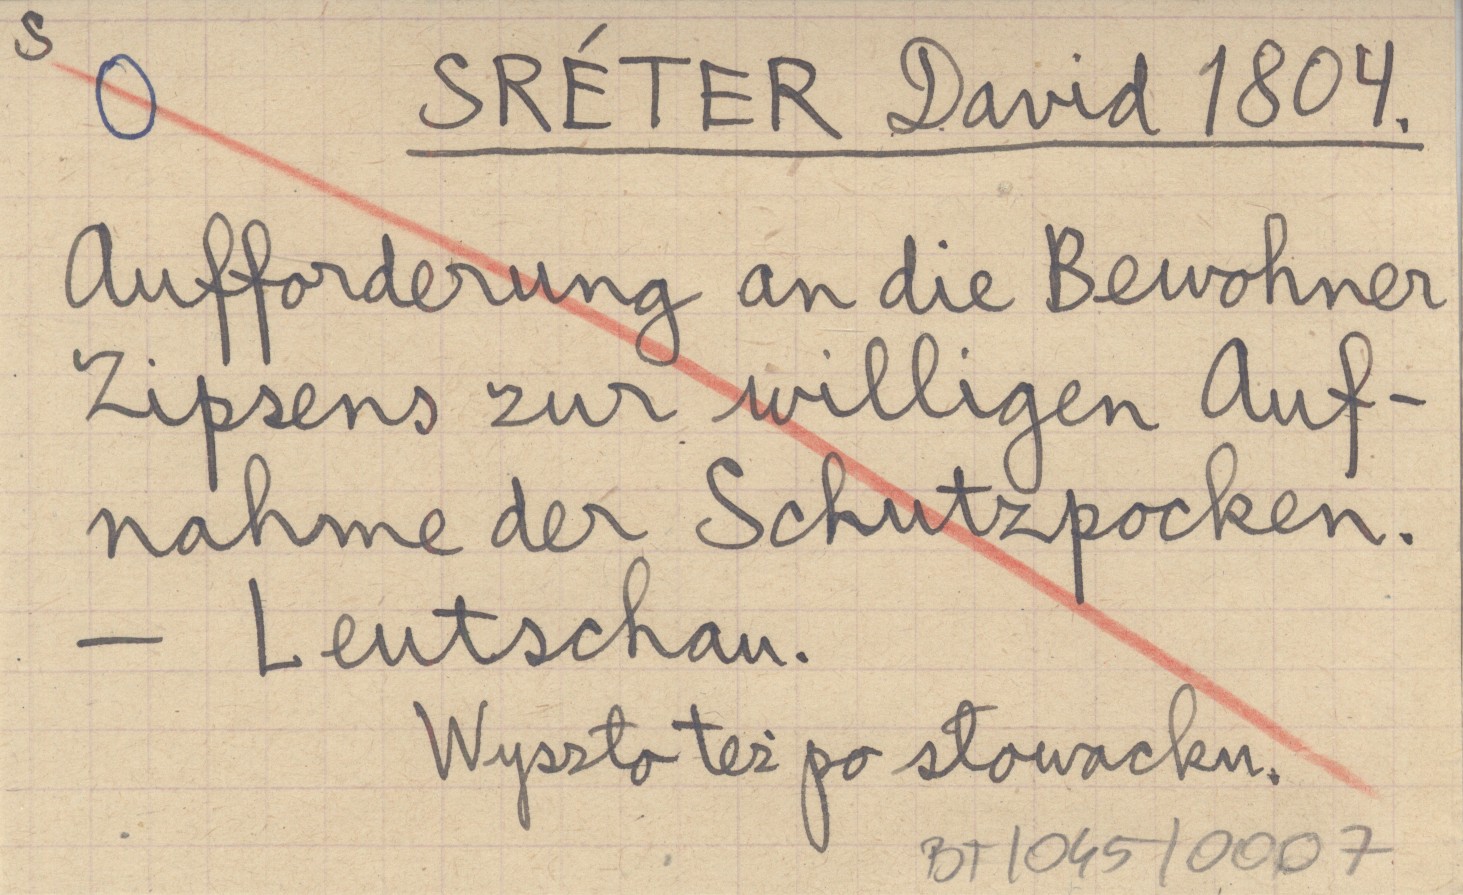 S
O SRÉTER David 1804.
Aufforderung an die Bewohner
Zipsens zur willigen Auf-
nahme der Schutzpocken.
— Leutschau.
Wyszło też po słowacku.
BT/045/0007